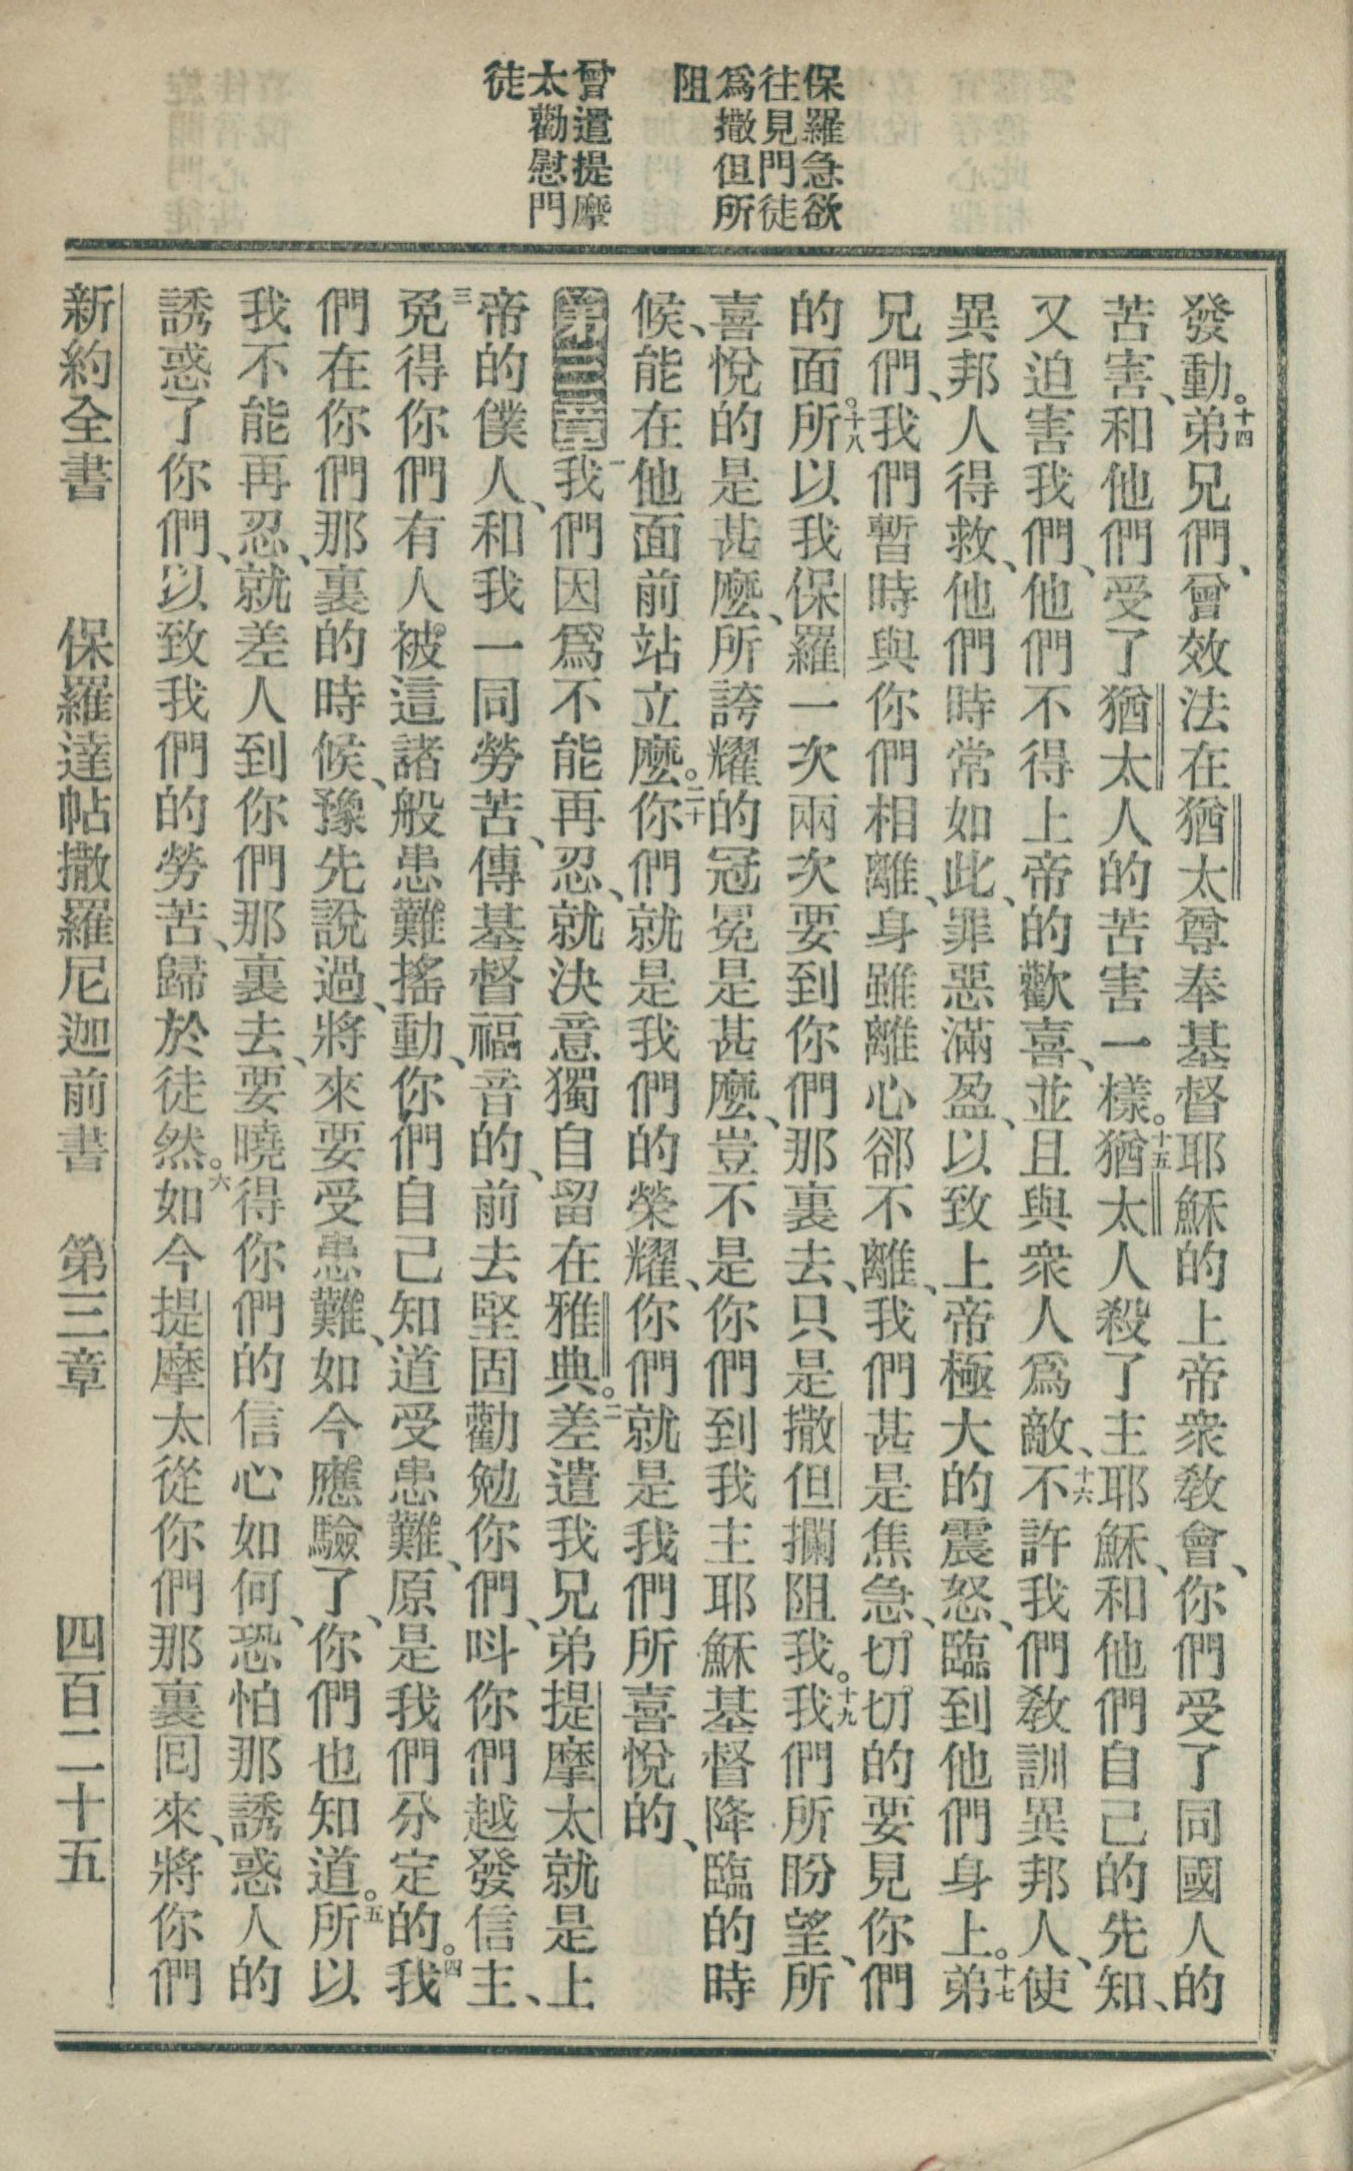 保羅急欲
往見門徒
爲撒但所
阻
曾遣提摩
太勸慰門
徒
發動。十四弟兄們、曾效法在猶太尊奉基督耶穌的上帝衆敎會、你們受了同國人的
苦害、和他們受了猶太人的苦害一樣。十五猶太人殺了主耶穌、和他們自己的先知、
又迫害我們、他們不得上帝的歡喜、並且與衆人爲敵、十六不許我們敎訓異邦人、使
異邦人得救、他們時常如此、罪惡滿盈、以致上帝極大的震怒、臨到他們身上。十七弟
兄們、我們暫時與你們相離、身雖離心郤不離、我們甚是焦急、切切的要見你們
的面。十八所以我保羅一次兩次要到你們那裏去、只是撒但攔阻我。十九我們所盼望、所
喜悅的是甚麼、所誇耀的冠冕是甚麼、豈不是你們到我主耶穌基督降臨的時
候、能在他面前站立麼。二十你們就是我們的榮耀、你們就是我們所喜悅的、
第三章一我們因爲不能再忍、就決意獨自留在雅典。二差遣我兄弟提摩太就是上
帝的僕人、和我一同勞苦、傳基督福音的、前去堅固勸勉你們、呌你們越發信主、
三免得你們有人被這諸般患難搖動、你們自己知道受患難、原是我們分定的。四我
們在你們那裏的時候、豫先說過、將來要受患難、如今應驗了、你們也知道。五所以
我不能再忍、就差人到你們那裏去、要曉得你們的信心如何、恐怕那誘惑人的
誘惑了你們、以致我們的勞苦、歸於徒然。六如今提摩太從你們那裏囘來、將你們
新約全書 保羅達帖撒羅尼迦前書 第三章 四百二十五